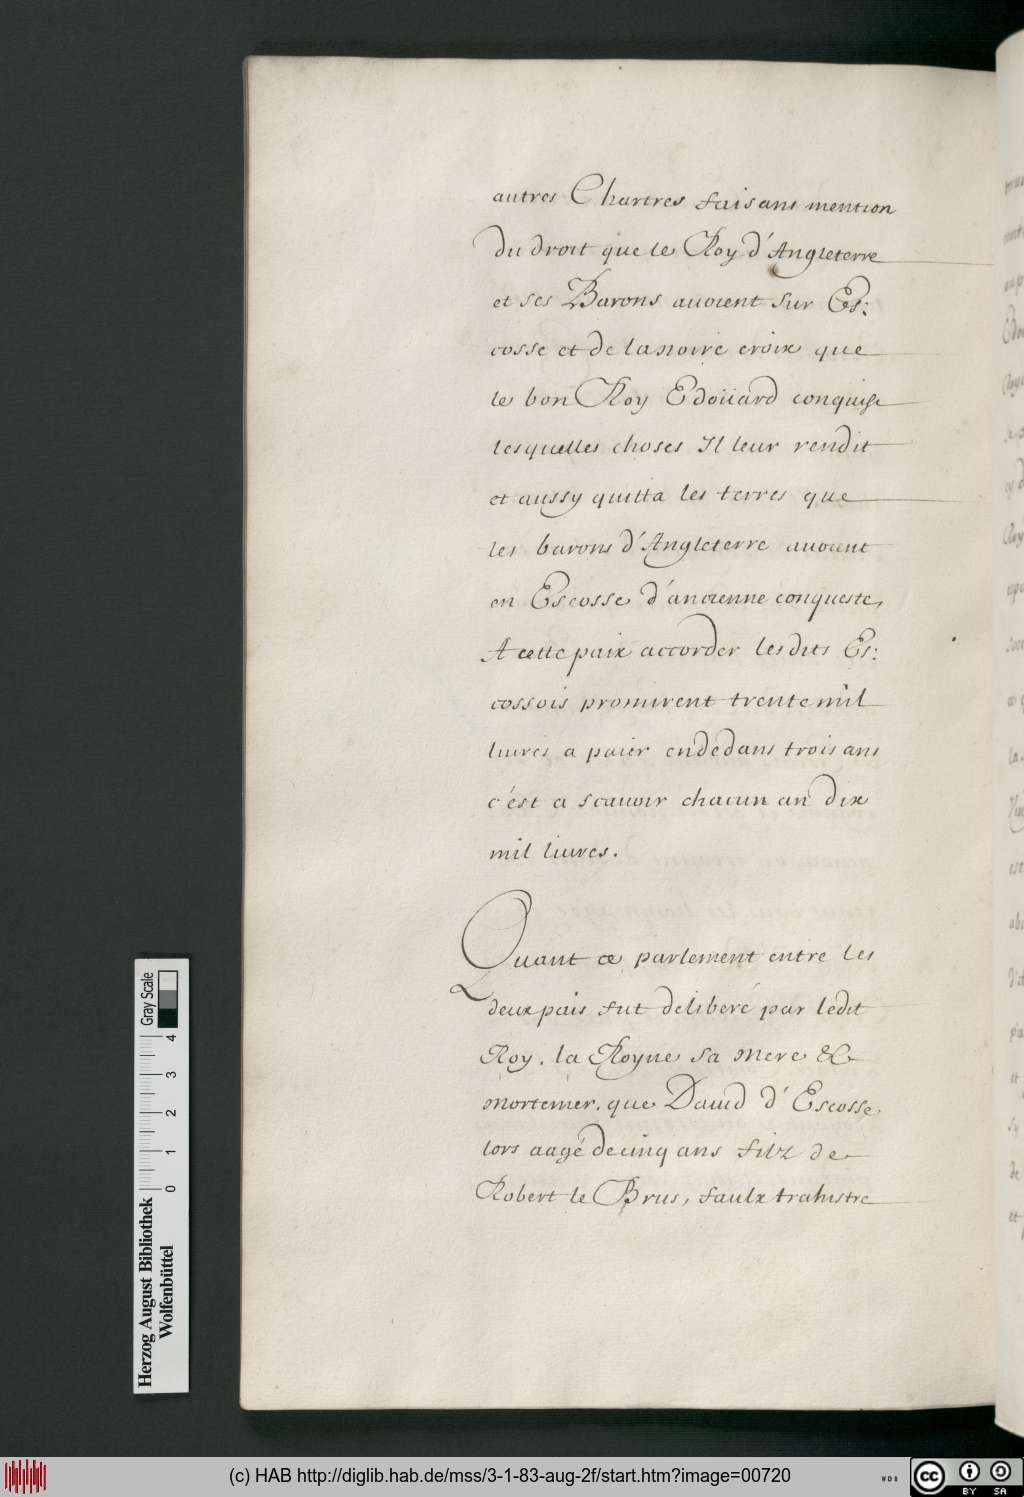 autres Chartres faisans mention
du droit que le Roy d'Angleterre
et ses Barons auoient sur Es:
cosse et de la noire croix que
le bon Roy Edoüard conquise
lesquelles choses Il leur rendit
et aussy quitta les terres que
les barons d'Angleterre auoient
en Escosse d'ancienne conqueste,
A cette paix accorder lesdits Es:
cossois promirent trente mil
liures a paier endedans trois ans
c'est a scauoir chacun an dix
mil liures.
Quant ce parlement entre les
deux pais fut deliberé par ledit
Roy, la Royne sa mere &
mortemer, que Dauid d'Escosse,
lors aagé de cinq ans filz de
Robert le Brus, faulx trahistre
Herzog August Bibliothek
Wolfenbüttel
0 1 2 3 4
Gray Scale
(c) HAB http://diglib.hab.de/mss/3-1-83-aug-2f/start.htm?image=00720
WDB
cc BY SA